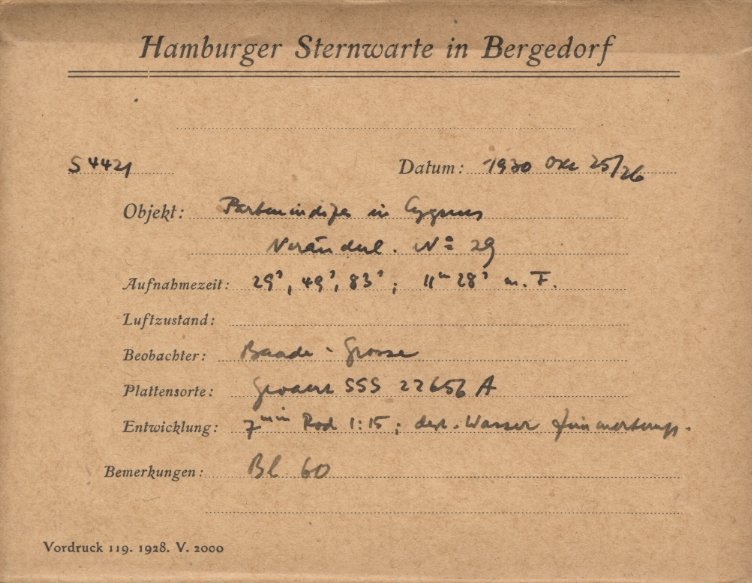 Hamburger Sternwarte in Bergedorf
S 4421 Datum: 1930 Okt 25/26
Objekt: Farbenindizes in Cygnus
Veränderl. No 29
Aufnahmezeit: 29s, 49s, 83s; 11m 28s m. F.
Luftzustand:
Beobachter: Baade - Grosse
Plattensorte: Gevaert SSS 22656 A
Entwicklung: 7min Rod 1:15; dest. Wasser Zimmertemp.
Bemerkungen: Bl 60
Vordruck 119. 1928. V. 2000